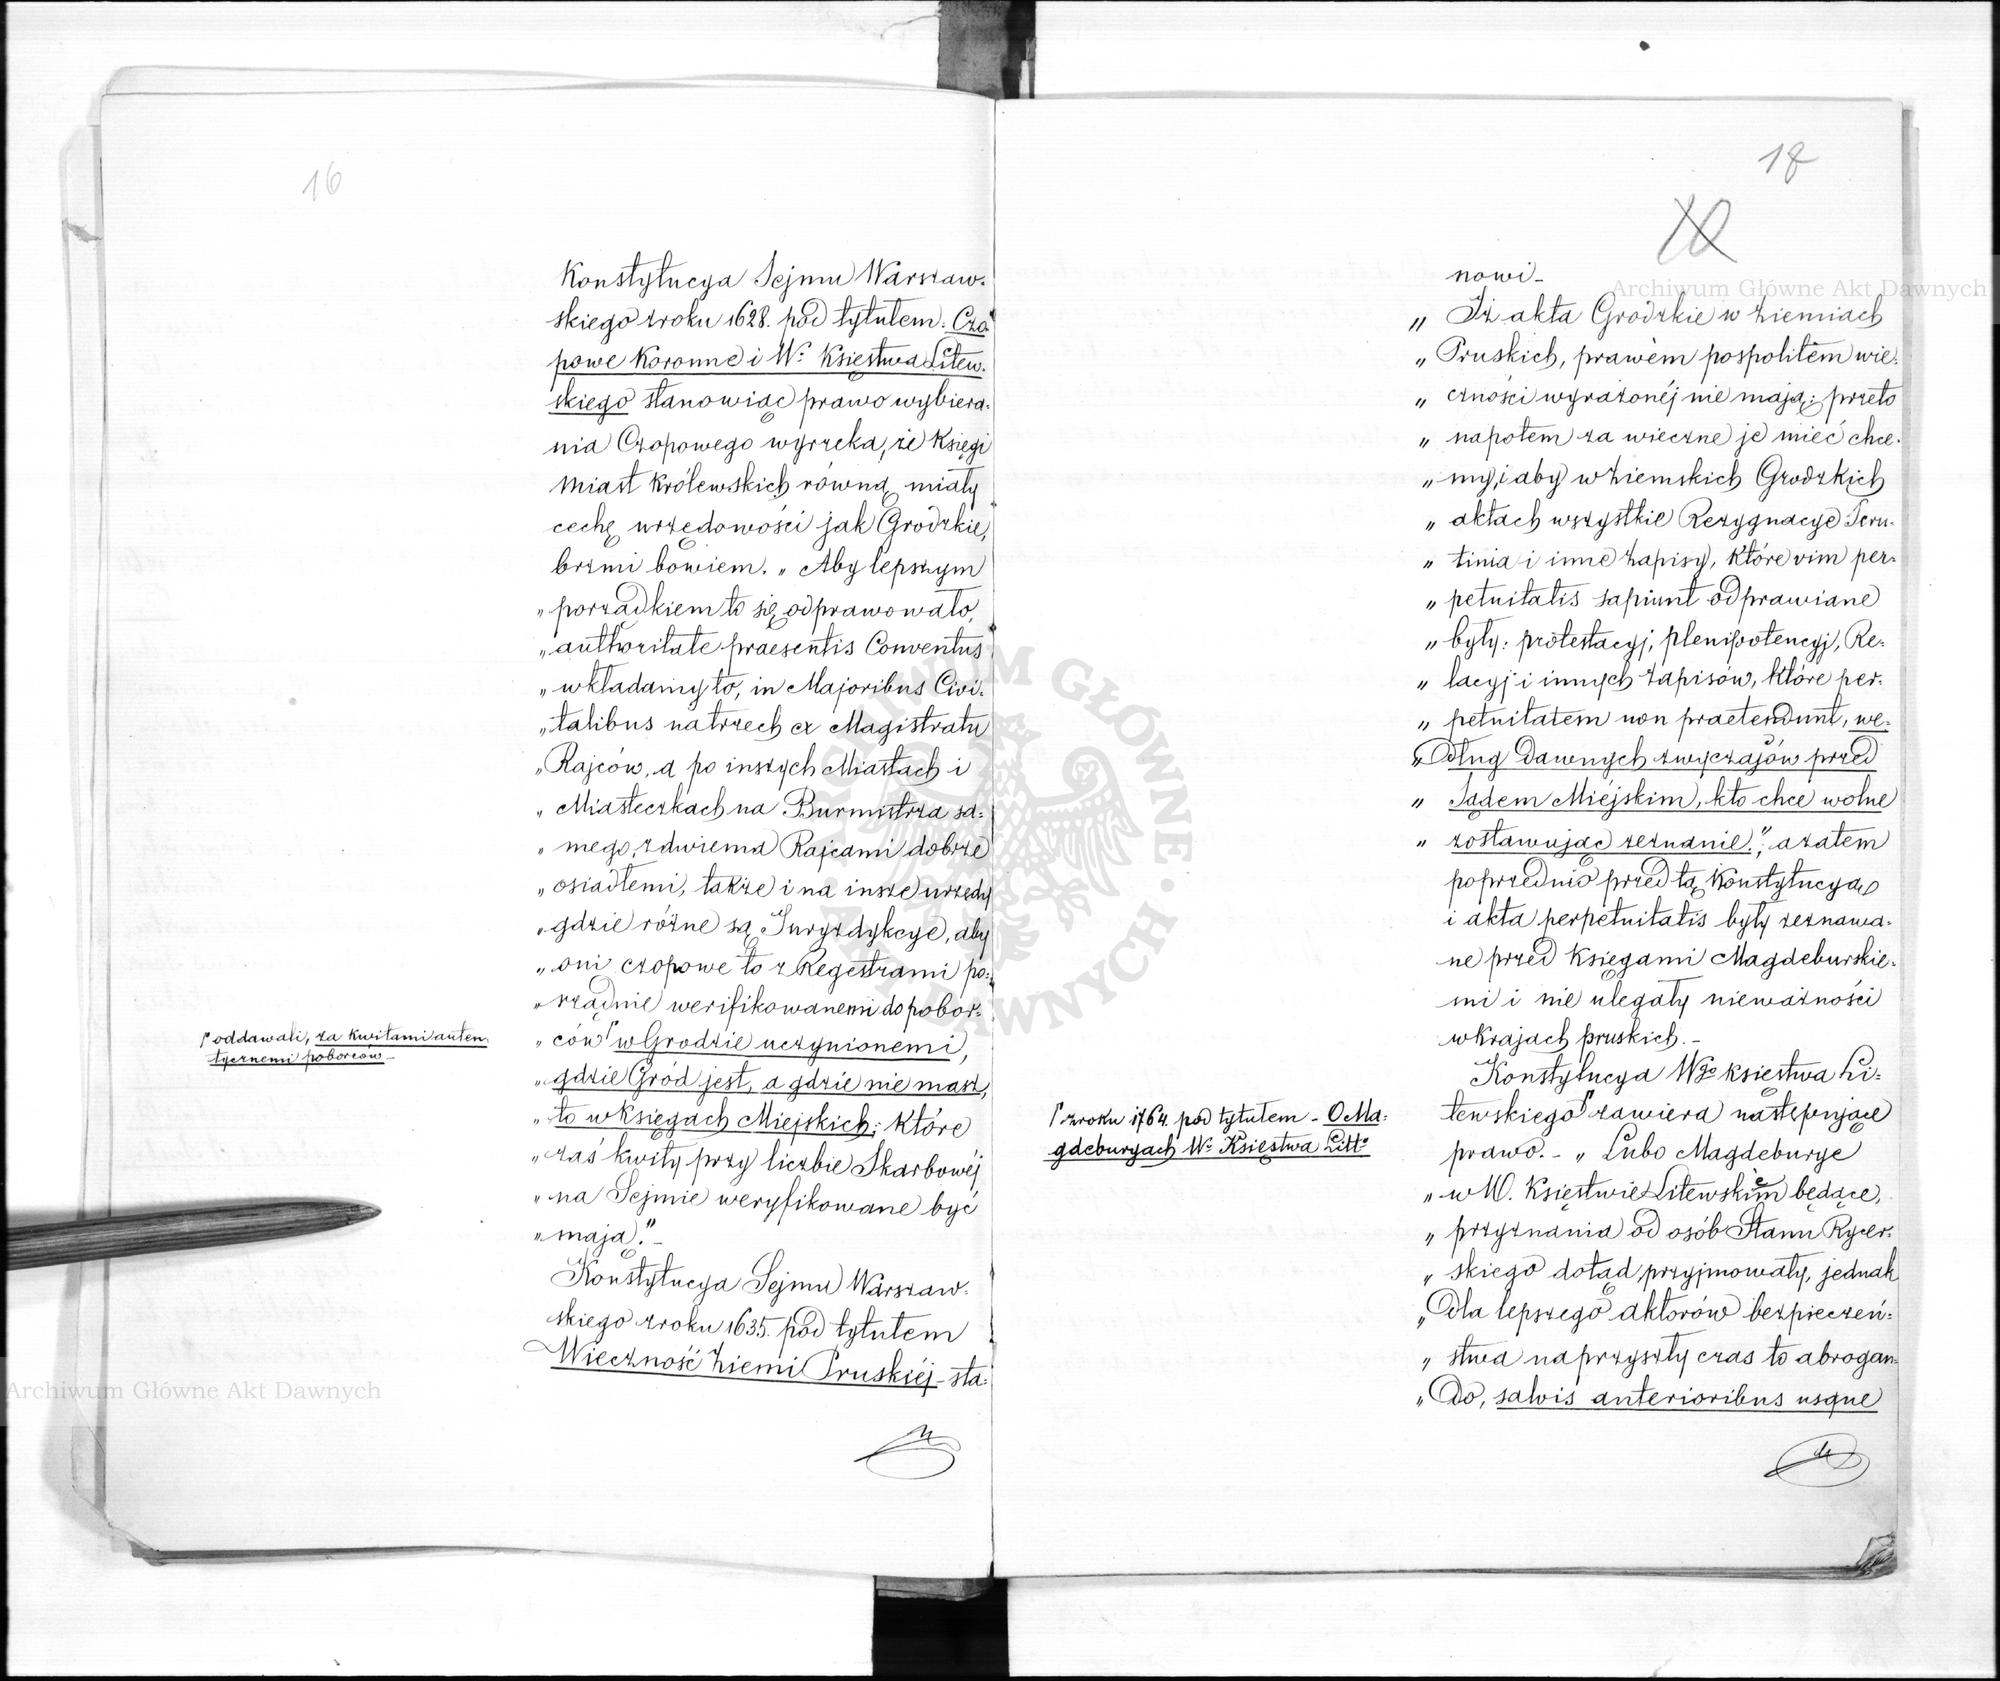 16
Konstytucya Sejmu Warszaw-
skiego z roku 1628. pod tytułem: Czo-
powe Koronne i Wo Księstwa Litew-
skiego stanowiąc prawo wybiera-
nia Czopowego wyrzeka, że Księgi
miast Królewskich równą miały
cechę urzędowości jak Grodzkie,
brzmi bowiem. „Aby lepszym
„porządkiem to się odprawowało,
„authoritate praesentis Conventus
„wkładamy to, in Majoribus Civi-
„tatibus na trzech ex Magistratu
„Rajców, a po inszych Miastach i
„Miasteczkach na Burmistrza sa-
„mego, z dwiema Rajcami dobrze
„osiadłemi, także i na insze urzędy
„gdzie różne są Juryzdykcye, aby
„oni czopowe to z Regestrami po-
„rządnie werifikowanemi do pobor-
„ców ┌ w Grodzie uczynionemi,
„gdzie Gród jest, a gdzie nie masz,
„to w Księgach Miejskich; które
„zaś kwity przy liczbie Skarbowéj
„na Sejmie weryfikowane być
„mają."–
┌ oddawali, za kwitami auten-
tycznemi poborców–
Konstytucya Sejmu Warszaw-
skiego z roku 1635. pod tytułem
Wieczność Ziemi Pruskiéj – sta-
17
10
nowi–
„Iż akta Grodzkie w Ziemiach
„Pruskich, prawem pospolitém wie-
„czności wyrażonéj nie mają: przeto
„napotem za wieczne je mieć chce-
„my, i aby w Ziemskich Grodzkich
„aktach wszystkie Rezygnacye Scru-
„tinia i inne zapisy, które vim per-
„petuitatis sapiunt odprawiane
„były: protestacyj, plenipotencyj, Re-
„lacyj i innych zapisów, które per-
„petuitatem non praetendunt, we-
„dług dawnych zwyczajów przed
„Sądem Miéjskim, kto chce wolne
„zostawując zeznanie."; a zatem
poprzednio przed tą Konstytucyą
i akta perpetuitatis były zeznawa-
ne przed Księgami Magdeburskie-
mi i nie ulegały nieważności
w krajach pruskich.–
Konstytucya Wgo Księstwa Li-
tewskiego ┌ zawiera następujące
prawo. – „Lubo Magdeburye
„w W. Księstwie Litewskiém będące,
„przyznania od osób Stanu Rycer-
„skiego dotąd przyjmowały, jednak
„dla lepszego aktorów bezpieczeń-
„stwa na przyszły czas to abrogan-
„do, salvis anterioribus usque
┌ z roku 1764. pod tytułem – O Ma-
gdeburyach Wo Księstwa Litto
ARCHIWUM GŁÓWNE AKT DAWNYCH
Archiwum Główne Akt Dawnych
Archiwum Główne Akt Dawnych